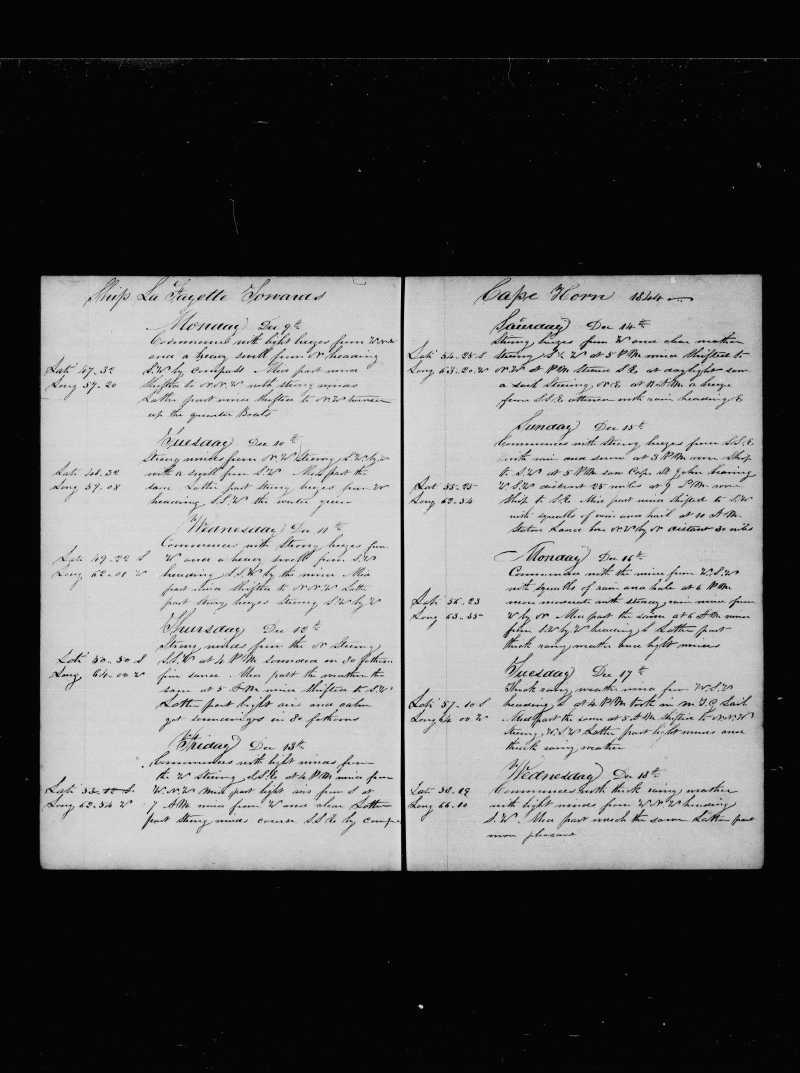 Ship La Fayette Towards
Monday Dec 9th
Commences with light breezes from W.N.W
and a heavy swell from N heading
Lati 47.32
S.W by compass Mid part wind
Long 57.20
shifted to N.N.W with strong winds
Latter part wind shifted to N.W turned
up the quarter Boats
Tuesday Dec 10th
Strong winds from N.W Steering S.W by W
Lati 48.32
with a swell from S.W Mid part the
Long 59.08
same Latter part strong breezes from W
heading S.S.W the water green
Wednesday Dec 11th
Commences with strong breezes from
Lati 49.22 S
W and a heavy swell from S.W
Long 62.01 W
heading S.S.W by the wind Mid
part wind shifted to N.N.W Latter
part strong breezes steering S.W by W
Thursday Dec 12th
Strong winds from the N Steering
Lati 50.50 S
S.S.W at 4 P.M sounded in 50 fathoms
Long 64.00 W
fine sand Mid part the weather the
same at 5 A.M wind shifted to S.W
Latter part light airs and calm
got soundings in 50 fathoms
Friday Dec 13th
Commences with light winds from
the W steering S.S.E at 4 P.M wind from
Lati
W.N.W Mid part light airs from S at
Long 62.54 W
7 A.M wind from W and clear Latter
part strong winds course S.S.E by compass
Cape Horn 1844
Saturday Dec 14th
Strong breezes from W and clear weather
Lati 54.25 S
Steering at 5 P.M wind shifted to
Long 63.20 W
N.W at P.M steered S.E at daylight saw
a sail Steering N.E at A.M a breeze
from S.S.E attended with rain heading E
Sunday Dec 15th
Commences with strong breezes from S.S.E
with rain and at 3 P.M wore Ship
to S.W at 5 P.M saw Cape St John bearing
Lat 55.25
W.S.W distant 25 miles at 9 P.M wore
Long 62.54
Ship to S.E Mid part wind shifted to S.W
with squalls of rain and hail at 10 A.M
Staten Land bore N.W by N distant 30 miles
Monday Dec 16th
Commences with the wind from W.S.W
with squalls of rain and hail at 6 P.M
Lati 56.23
more moderate with steady rain wind from
Long 63.55
W by N Mid part the same at 6 A.M wind
from S.W by W heading S Latter part
thick rainy weather and light winds
Tuesday Dec 17th
Thick rainy weather wind from W.S.W
Lati 57.10 S
heading S at 4 P.M took in M.T.G Sail
Long 64 00 W
Mid part the same at 5 A.M Shifted to N.N.W
steering W.S.W Latter part light winds and
thick rainy weather
Wednesday Dec 18th
Lati 58.19
Commences with thick rainy weather
Long 66.10
with light winds from W.N.W heading
S.W. Mid part much the same Latter part
more pleasant